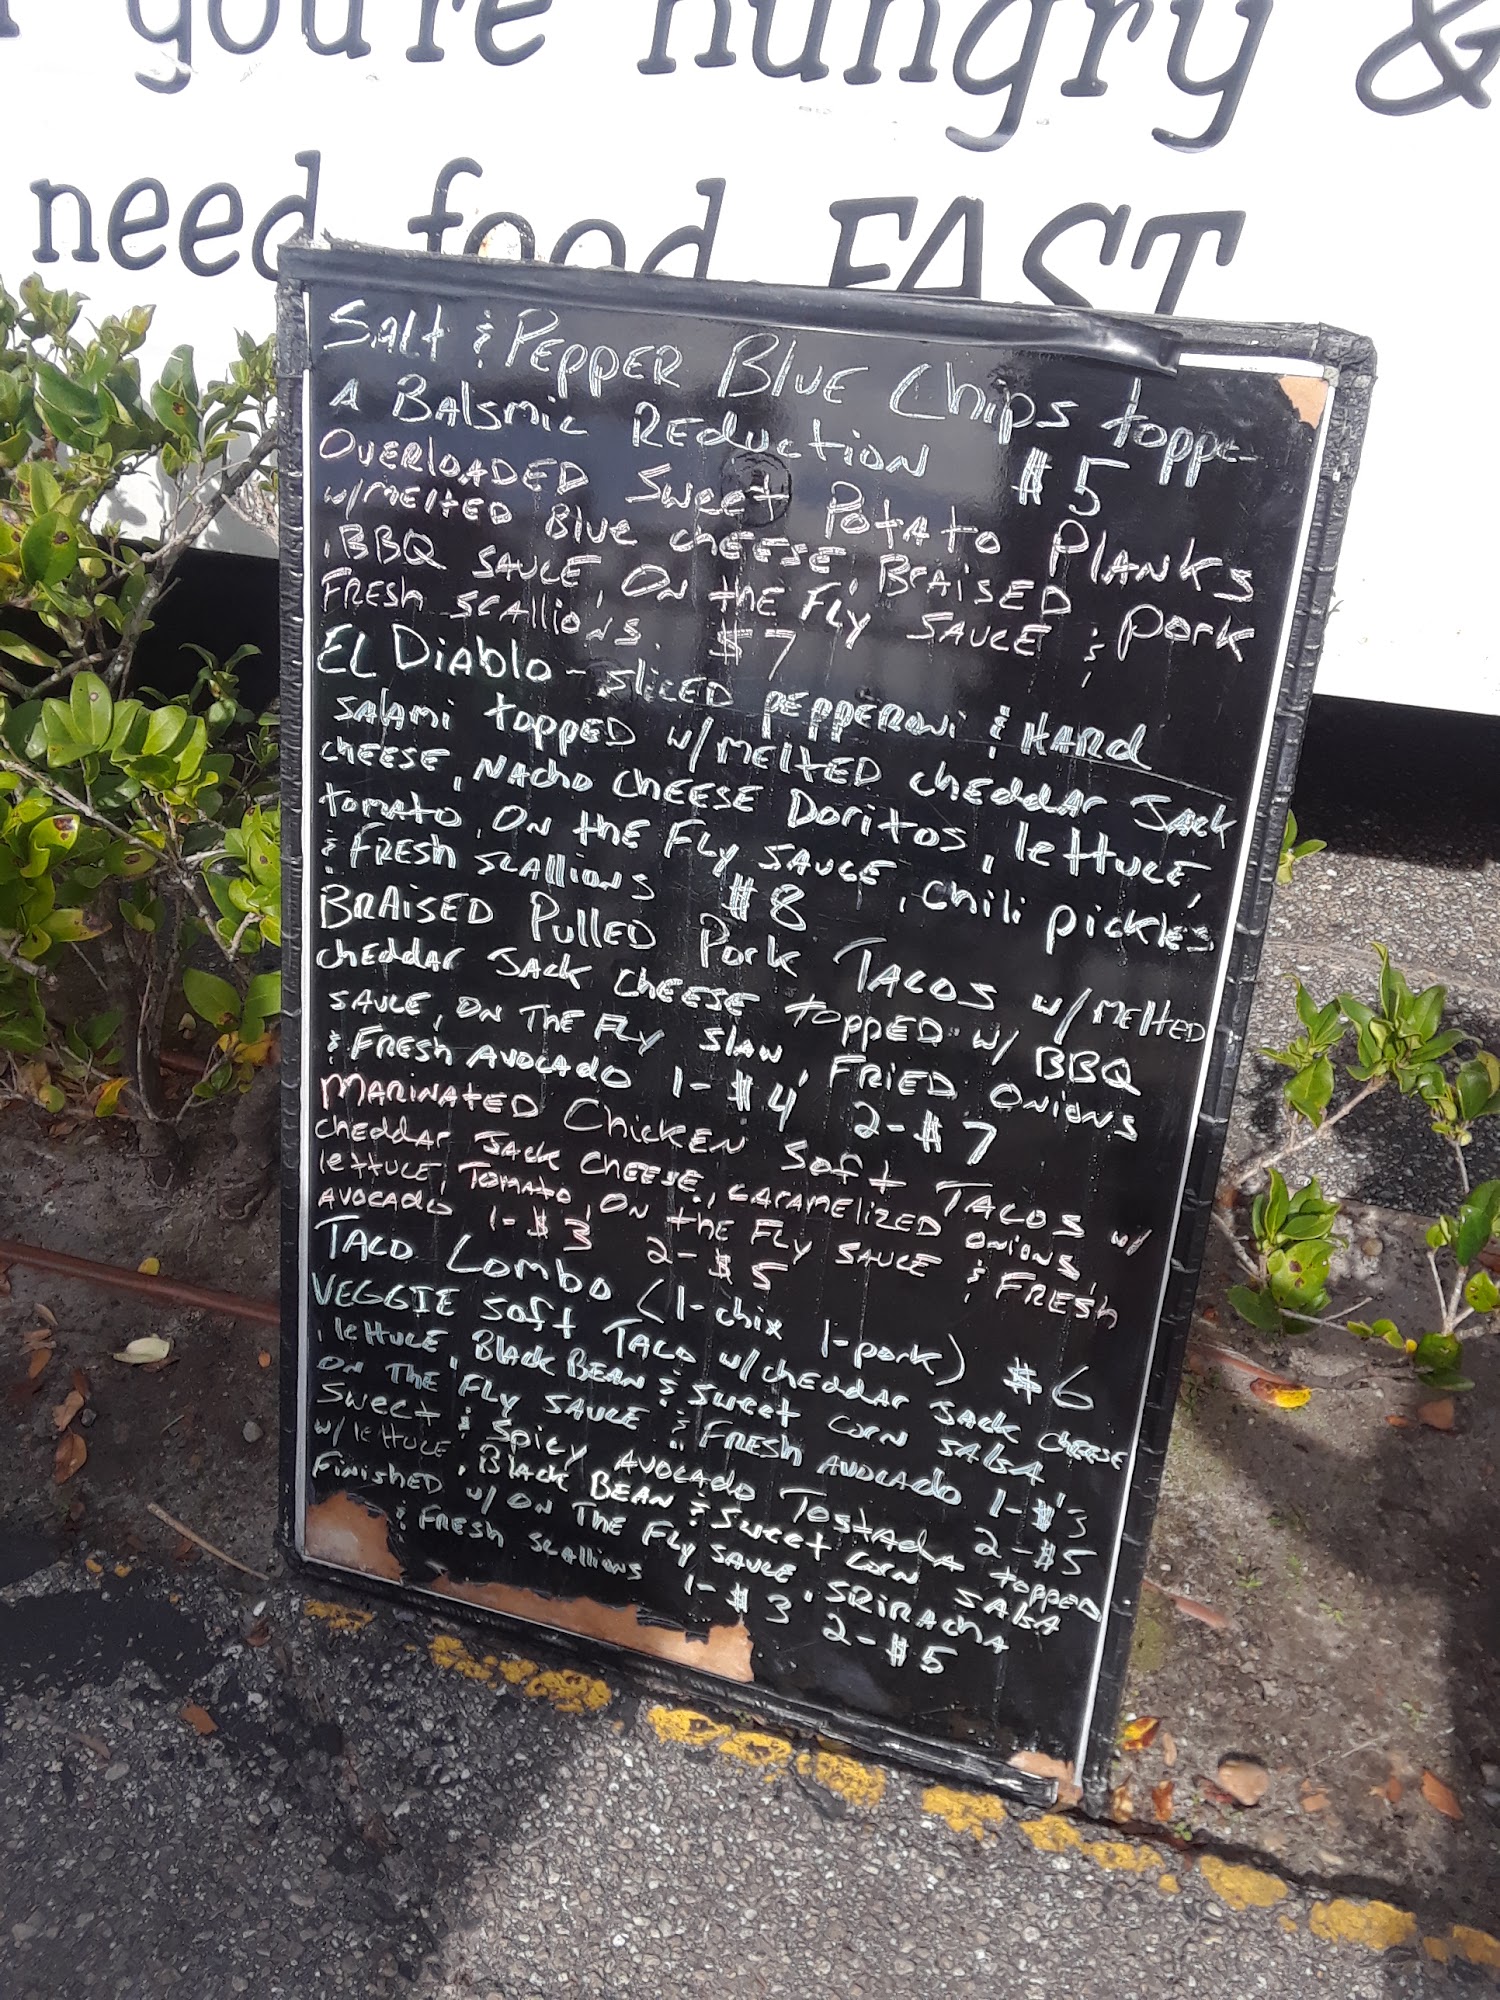 you're hungry &
need food FAST
Salt & PEPPER BLUE Chips toppe
A BAlsmic REduction $5
OVERLOADED Sweet PotAto PLANKS
w/MELTED Blue CHEESE, BrAISED Pork
, BBQ SAUCE, ON the FLY SAUCE &
FRESH SCAllioNS. $7
EL DiAblo - SlicED PEPPERONi & HARd
SAlAmi topPED w/MELTED cheddAr JAck
CHEESE, NACho CHEESE Doritos, lettUCE,
tomAto, ON the FLY SAUCE, Chili pickles
& FRESH SCAllioNS $8
BRAISED PullED Pork TACOS w/MELTED
cheddAr JACK CHEESE topPED w/ BBQ
SAUCE, ON THE FLY SlAW, FRIED ONIONS
& FRESH AVOCADO 1-$4 2-$7
MARINATED ChickEN Soft TACOS w/
cheddAr JACK CHEESE, CARAMELIZED ONIONS,
lettUCE, TomAto, ON the FLY SAUCE & FRESH
AVOCADO 1-$3 2-$5
TACO Lombo (1-chix 1-pork) $6
VEGGIE Soft TACO w/cheddAr JACK CHEESE
, lettUCE, BlAck BEAN & Sweet CORN SAlsA
ON THE FLY SAUCE & FRESH AVOCADO 1-$3
Sweet & Spicy AVOCADO TostAdA 2-$5
w/lettUCE, BlAck BEAN & Sweet CORN SAlsA topPED
FiNISHED w/ ON THE FLY SAUCE, SRIRACHA
& FRESH SCAllioNS 1-$3 2-$5